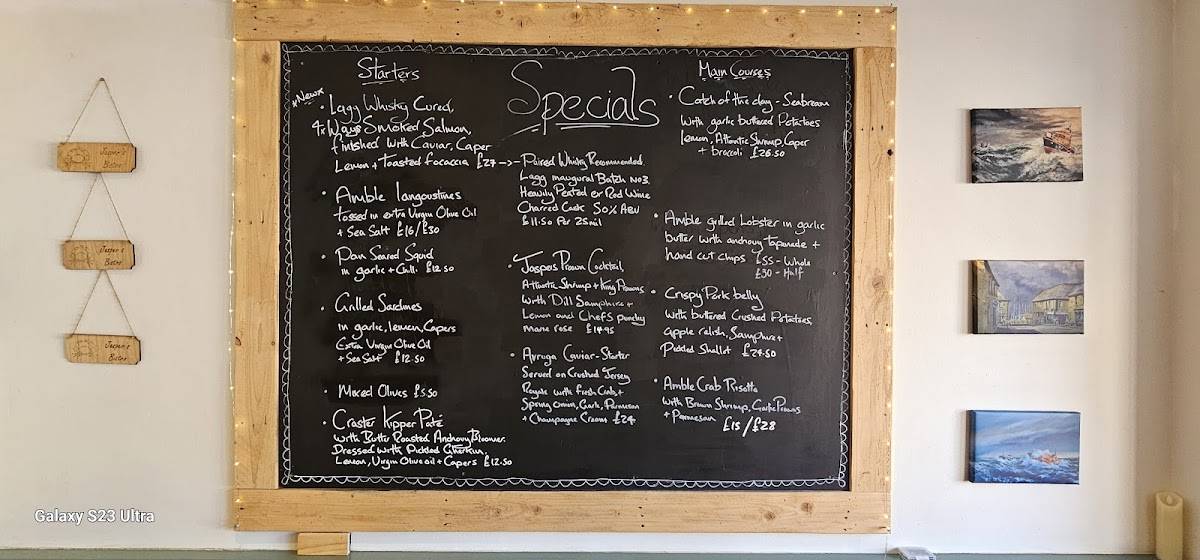 Starters
*New*
• Lagg Whisky Cured,
4x Ways Smoked Salmon,
finished with Caviar, Caper
Lemon + Toasted focaccia £27 ->
• Amble Langoustines
tossed in extra Virgin Olive Oil
+ Sea Salt £16/£30
• Pan Seared Squid
in garlic + Chilli £12.50
• Grilled Sardines
in garlic, lemon, Capers
Extra Virgin Olive Oil
+ Sea Salt £12.50
• Mixed Olives £5.50
• Craster Kipper Paté
with Butter Roasted Anchovy Bloomer.
Dressed with Pickled Gherkin,
Lemon, Virgin Olive oil + Capers £12.50
Specials
- Paired Whisky Recommended
Lagg inaugural Batch No3.
Heavily Peated ex Red Wine
Charred Cask 50% ABV
£11.50 Per 25mil
• Jaspers Prawn Cocktail
Atlantic Shrimp + King Prawns
with Dill Samphire +
Lemon and Chefs punchy
marie rose £14.95
• Avruga Caviar - Starter
Served on Crushed Jersey
Royals with fresh Crab, +
Spring Onion, Garlic, Parmesan
+ Champagne Cream £24
Main Courses
• Catch of the day - Seabream
with garlic buttered Potatoes
lemon, Atlantic Shrimp, Caper
+ broccoli £26.50
• Amble grilled Lobster in garlic
butter with anchovy tapenade +
hand cut chips £55 - Whole
£30 - Half
• Crispy Pork belly
with buttered Crushed Potatoes,
apple relish, Samphire +
Pickled Shallot £24.50
• Amble Crab Risotto
with Brown Shrimp, Garlic Prawns
+ Parmesan £15/£28
Jasper's
Bistro
Jasper's
Bistro
Jasper's
Bistro
Galaxy S23 Ultra